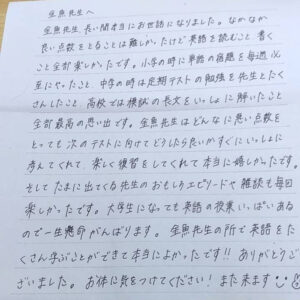 金魚先生へ
金魚先生、長い間本当にお世話になりました。なかなか
良い点数をとることは難しかったけど英語を読むこと書く
こと全部楽しかったです。小学の時に単語の宿題を毎週必
至にやったこと、中学の時は定期テストの勉強を先生とたく
さんしたこと、高校では模試の長文をいっしょに解いたこと
全部最高の思い出です。金魚先生はどんなに悪い点数を
とっても次のテストに向けてどうしたら良いかすぐにいっしょに
考えてくれて、楽しく練習をしてくれて本当に嬉しかったです。
そしてたまに出てくる先生のおもしろエピソードや雑談も毎回
楽しかったです。大学生になっても英語の授業いっぱいある
ので一生懸命がんばります。金魚先生の所で英語をた
くさん学ぶことができて本当によかったです!!ありがとうご
ざいました。お体に気をつけてください!また来ます